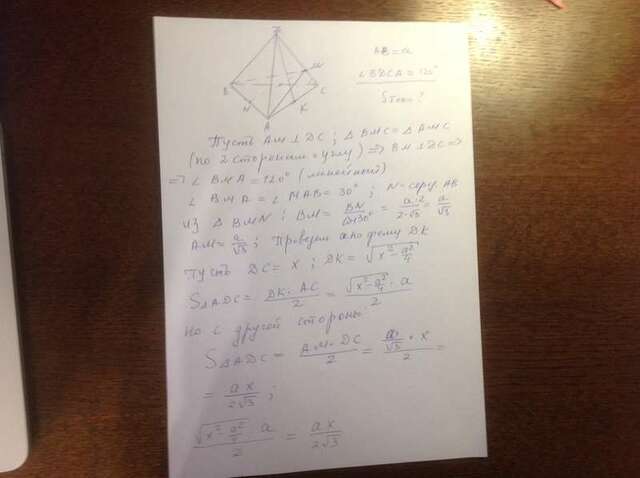 D
B
M
C
N
K
A
AB = a
∠BDCA = 120°
Sполн ?
Пусть AM ⊥ DC ; △ BMC = △ AMC
(по 2 сторонам и углу) ⇒ BM ⊥ DC ⇒
⇒ ∠ BMA = 120° (линейный)
∠ BMA = ∠ MAB = 30° ; N - сер. AB
из △ BMN ; BM = BN / cos 30° = a · 2 / 2·√3 = a / √3
AM = a / √3 ; Проведем апофему DK
Пусть DC = x ; DK = √(x² - a²/4)
S△ADC = DK · AC / 2 = √(x² - a²/4) · a / 2
Но с другой стороны:
S△ADC = AM · DC / 2 = a/√3 · x / 2 =
= ax / 2√3 ;
√(x² - a²/4) · a / 2 = ax / 2√3